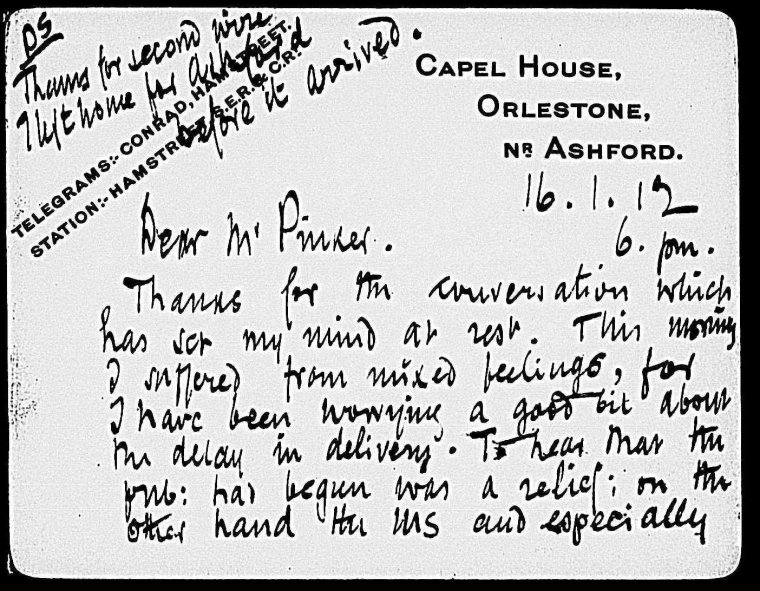 PS
Thanks for second wire
I left home for Ashford
before it arrived.
TELEGRAMS:- CONRAD, HAMSTREET.
STATION:- HAMSTREET, S.E.R. & C.R.
CAPEL HOUSE,
ORLESTONE,
NR ASHFORD.
16.1.12
6. pm.
Dear Mr Pinker.
Thanks for the conversation which
has set my mind at rest. This morning
I suffered from mixed feelings, for
I have been worrying a good bit about
the delay in delivery. To hear that the
pub: has begun was a relief; on the
other hand the MS and especially